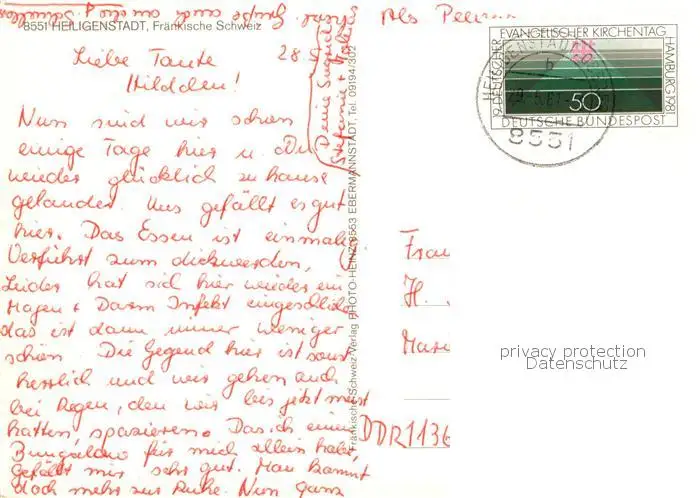 8551 HEILIGENSTADT, Fränkische Schweiz
28.5.
Liebe Tante
Hildchen!
Nun sind wir schon
einige Tage hier u. Du
wieder glücklich zu hause
gelandet. Uns gefällt es gut
hier. Das Essen ist einmalig
Verführt zum dickwerden,
Leider hat sich hier wieder ein
Magen + Darm Infekt eingeschlichen
das ist dann immer weniger
schön. Die Gegend hier ist sonst
herrlich und wir gehen auch
bei Regen, den wir bis jetzt meist
hatten, spazieren. Das ich einen
Bungalow für mich allein habe,
gefällt mir sehr gut. Man kommt
doch mehr zur Ruhe. Nun ganz
Deine
Stefanie +
Fränkische Schweiz-Verlag PHOTO-HEINZ 8553 EBERMANNSTADT, Tel. 09194/302
19. DEUTSCHER EVANGELISCHER KIRCHENTAG HAMBURG 1981
50
DEUTSCHE BUNDESPOST
HEILIGENSTADT
b
8551
Frau
H.
DDR 1136
privacy protection
Datenschutz